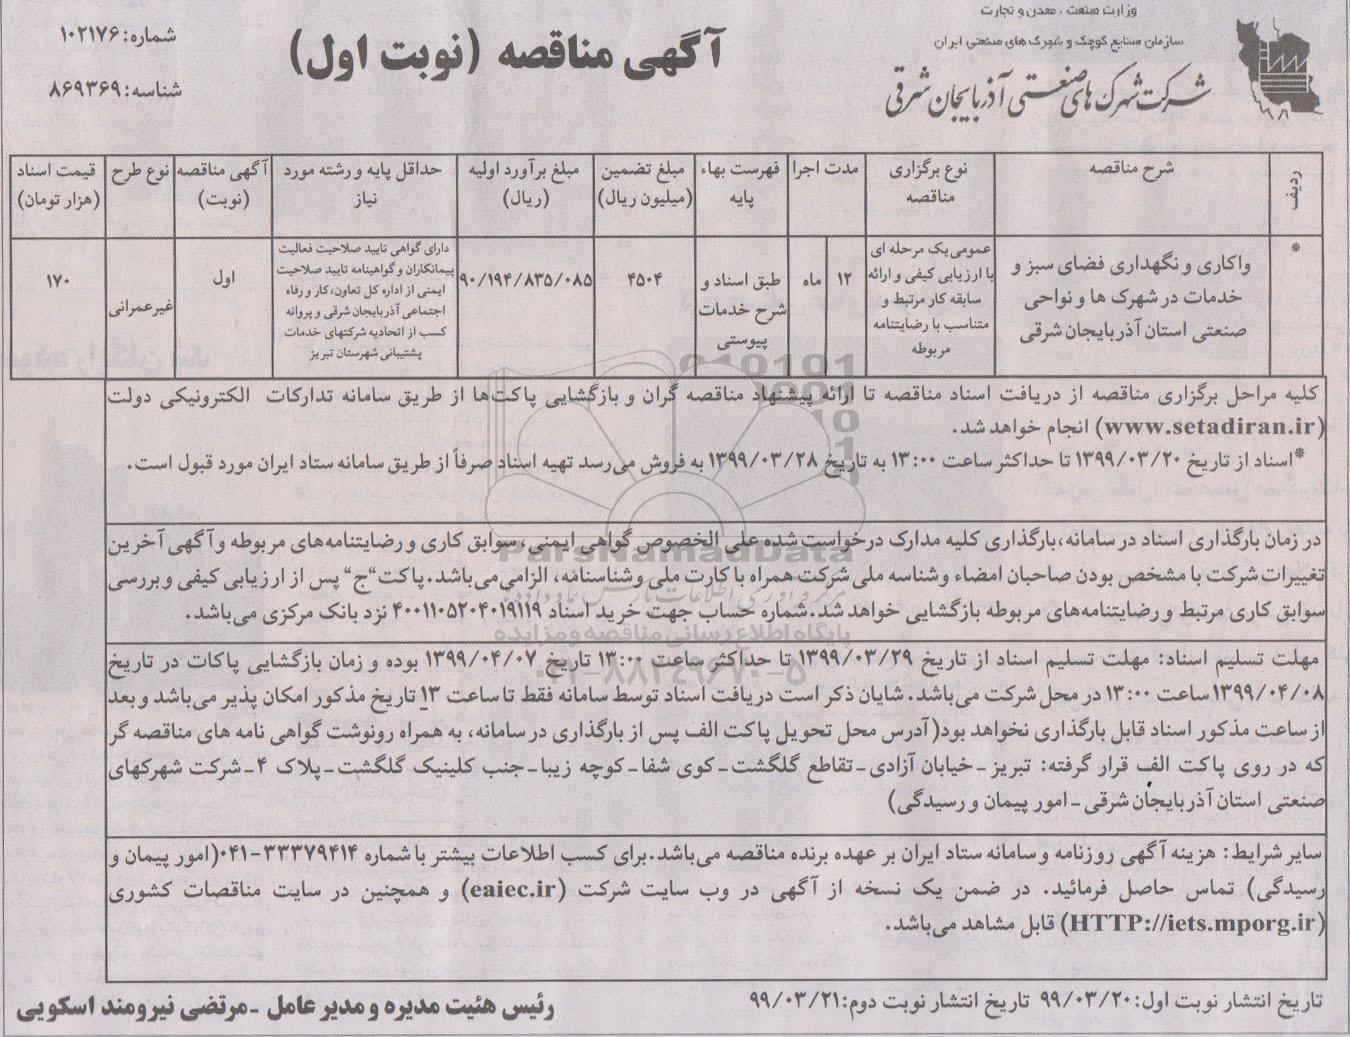 وزارت صنعت ، معدن و تجارت
سازمان صنایع کوچک و شهرک های صنعتی ایران
شرکت شهرک های صنعتی آذربایجان شرقی
آگهی مناقصه (نوبت اول)
شماره: ۱۰۲۱۷۶
شناسه: ۸۶۹۳۶۹
ردیف
شرح مناقصه
نوع برگزاری مناقصه
مدت اجرا
فهرست بهاء پایه
مبلغ تضمین (میلیون ریال)
مبلغ برآورد اولیه (ریال)
حداقل پایه و رشته مورد نیاز
آگهی مناقصه (نوبت)
نوع طرح
قیمت اسناد (هزار تومان)
*
واکاری و نگهداری فضای سبز و
خدمات در شهرک ها و نواحی
صنعتی استان آذربایجان شرقی
عمومی یک مرحله ای
با ارزیابی کیفی و ارائه
سابقه کار مرتبط و
متناسب با رضایتنامه
مربوطه
۱۲
ماه
طبق اسناد و
شرح خدمات
پیوستی
۴۵۰۴
۹۰/۱۹۴/۸۳۵/۰۸۵
دارای گواهی تایید صلاحیت فعالیت
پیمانکاران و گواهینامه تایید صلاحیت
ایمنی از اداره کل تعاون، کار و رفاه
اجتماعی آذربایجان شرقی و پروانه
کسب از اتحادیه شرکتهای خدمات
پشتیبانی شهرستان تبریز
اول
غیرعمرانی
۱۷۰
کلیه مراحل برگزاری مناقصه از دریافت اسناد مناقصه تا ارائه پیشنهاد مناقصه گران و بازگشایی پاکت‌ها از طریق سامانه تدارکات الکترونیکی دولت
(www.setadiran.ir) انجام خواهد شد.
*اسناد از تاریخ ۱۳۹۹/۰۳/۲۰ تا حداکثر ساعت ۱۳:۰۰ به تاریخ ۱۳۹۹/۰۳/۲۸ به فروش می‌رسد تهیه اسناد صرفاً از طریق سامانه ستاد ایران مورد قبول است.
در زمان بارگذاری اسناد در سامانه، بارگذاری کلیه مدارک درخواست شده علی الخصوص گواهی ایمنی، سوابق کاری و رضایتنامه‌های مربوطه و آگهی آخرین
تغییرات شرکت با مشخص بودن صاحبان امضاء وشناسه ملی شرکت همراه با کارت ملی و شناسنامه، الزامی می‌باشد. پاکت “ج” پس از ارزیابی کیفی و بررسی
سوابق کاری مرتبط و رضایتنامه‌های مربوطه بازگشایی خواهد شد. شماره حساب جهت خرید اسناد ۴۰۰۱۱۰۵۲۰۴۰۱۹۱۱۹ نزد بانک مرکزی می‌باشد.
مهلت تسلیم اسناد: مهلت تسلیم اسناد از تاریخ ۱۳۹۹/۰۳/۲۹ تا حداکثر ساعت ۱۳:۰۰ تاریخ ۱۳۹۹/۰۴/۰۷ بوده و زمان بازگشایی پاکات در تاریخ
۱۳۹۹/۰۴/۰۸ ساعت ۱۳:۰۰ در محل شرکت می‌باشد. شایان ذکر است دریافت اسناد توسط سامانه فقط تا ساعت ۱۳ تاریخ مذکور امکان پذیر می‌باشد و بعد
از ساعت مذکور اسناد قابل بارگذاری نخواهد بود( آدرس محل تحویل پاکت الف پس از بارگذاری در سامانه، به همراه رونوشت گواهی نامه های مناقصه گر
که در روی پاکت الف قرار گرفته: تبریز ـ خیابان آزادی ـ تقاطع گلگشت ـ کوی شفا ـ کوچه زیبا ـ جنب کلینیک گلگشت ـ پلاک ۴ ـ شرکت شهرکهای
صنعتی استان آذربایجان شرقی ـ امور پیمان و رسیدگی)
سایر شرایط: هزینه آگهی روزنامه و سامانه ستاد ایران بر عهده برنده مناقصه می‌باشد. برای کسب اطلاعات بیشتر با شماره ۳۳۳۷۹۴۱۴-۰۴۱ (امور پیمان و
رسیدگی) تماس حاصل فرمائید. در ضمن یک نسخه از آگهی در وب سایت شرکت (eaiec.ir) و همچنین در سایت مناقصات کشوری
(HTTP://iets.mporg.ir) قابل مشاهد می‌باشد.
تاریخ انتشار نوبت اول: ۹۹/۰۳/۲۰ تاریخ انتشار نوبت دوم: ۹۹/۰۳/۲۱
رئیس هئیت مدیره و مدیر عامل ـ مرتضی نیرومند اسکویی
ParsNamadData
مرکز فرآوری اطلاعات پارس نماد داده ها
پایگاه اطلاع رسانی مناقصه و مزایده
۰۲۱-۸۸۳۴۹۶۷۰-۵